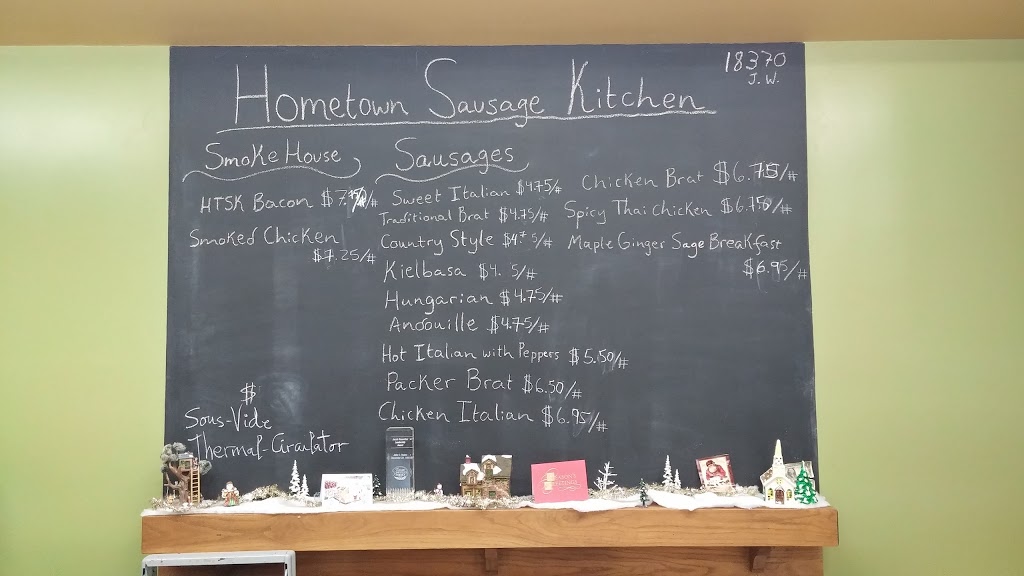 18370
J.W.
Hometown Sausage Kitchen
Smoke House
HTSK Bacon
Smoked Chicken
$7.25/#
$
Sous-Vide
Thermal-Circulator
Sausages
Sweet Italian $4.75/#
Traditional Brat $4.75/#
Country Style
Kielbasa
Hungarian $4.75/#
Andouille $4.75/#
Hot Italian with Peppers $5.50/#
Packer Brat $6.50/#
Chicken Italian $6.95/#
Chicken Brat $6.75/#
Spicy Thai Chicken $6.75/#
Maple Ginger Sage Breakfast
$6.95/#